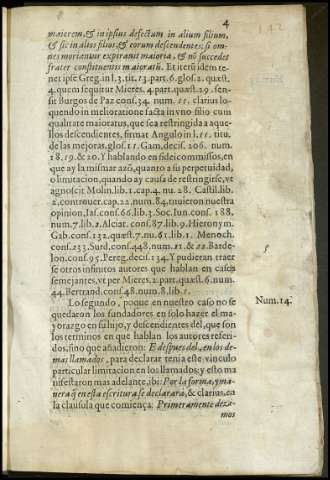 4
142
maiorem, & in ipsius defectum in alium filium,
& sic in altos filios, & eorum descendentes; si om-
nes moriantur expirauit maioria, & nõ succedes
frater constituentis maioratũ. Et iters idem te-
net ipse Greg. in l.3. tit. 13. part. 6. glos. 2. quæst.
4. quem sequitur Mieres. 4. part. quæst. 29. sen-
sit Burgos de Paz cons. 34. num. 11. clarius lo-
quendo in melioratione facta in vno filio cum
qualitate maioratus, que sea restringida a aque-
llos descendientes, firmat Angulo in l. 11. titu.
de las mejoras. glos. 11. Gam. decis. 206. num.
18. 19. & 20. Y hablando en fideicommissos, en
que ay la misma razõ, quanto a su perpetuidad,
o limitacion, quando ay causa de restringirse, vt
agnoscit Molin. lib. 1. cap. 4. nu. 28. Castil. lib.
2. controuer. cap. 22. num. 84. tituieron nuestra
opinion, Ias. cons. 66. lib. 3. Soc. Iun. cons. 188.
num. 7. lib. 1. Alciat. cons. 87. lib. 9. Hieronym.
Gab. cons. 132. quæst. 7. nu. 61. lib. 1. Menoch.
cons. 233. Surd. cons. 448. num. 21. & 22. Barde-
lon. cons. 95. Pereg. decis. 134. Y pudieran traer
se otros infinitos autores que hablan en casos
semejantes, vt per Mieres. 2. part. quæst. 6. num.
44. Bertrand. cons. 48. num. 8. lib. 1.
Lo segundo, poque en nuestro caso no se
quedaron los fundadores en solo hazer el ma-
yorazgo en su hijo, y descendientes dél, que son
los terminos en que hablan los autores referi-
dos, sino que añidieron: E despues del, en los de-
mas llamados, para declarar tenia este vinculo
particular limitacion en los llamados; y esto ma
nifestaron mas adelante, ibi: Por la forma, y ma-
nera q̃ en esta escritura se declarara, & clarius, en
la clausula que comiença: Primeramente dexa-
mos
Num. 14.